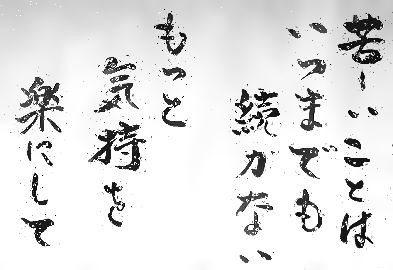 苦しいことは
いつまでも
続かない
もっと
気持を
楽にして